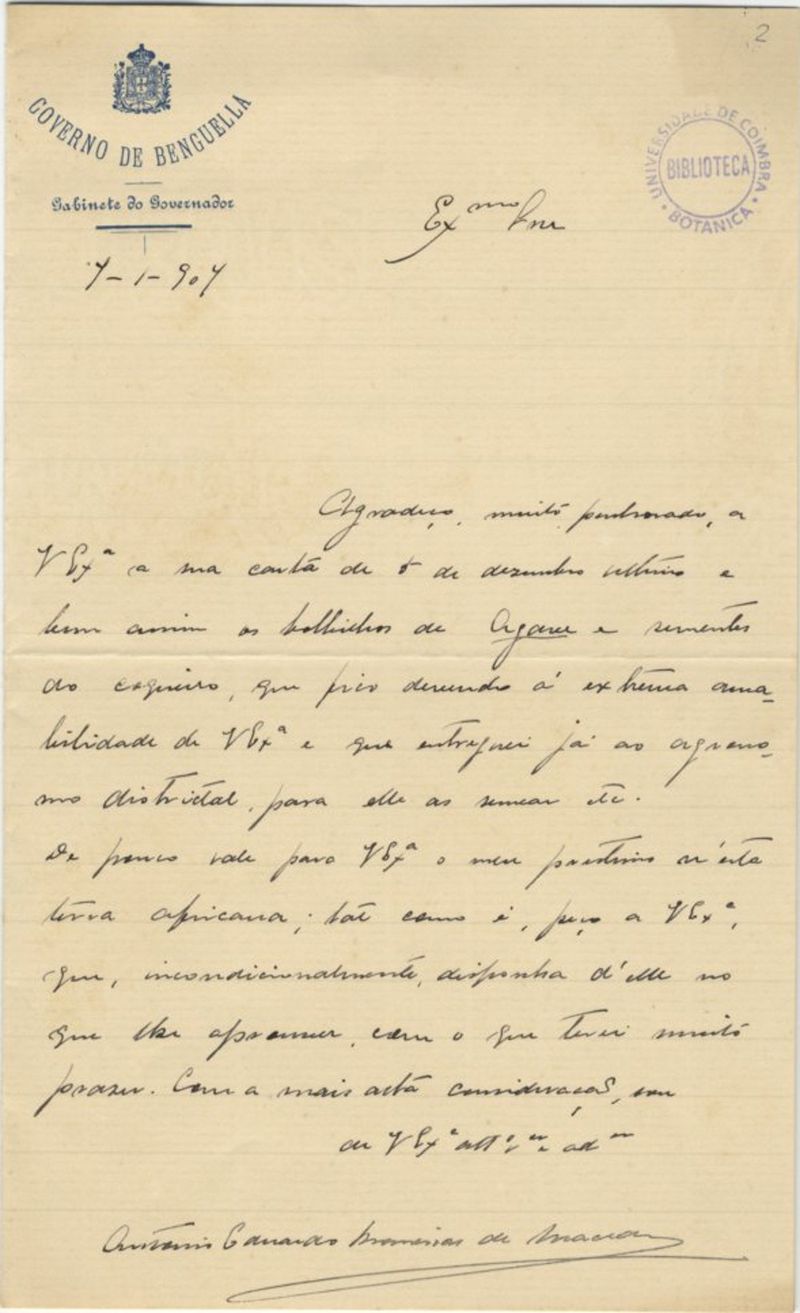 2
GOVERNO DE BENGUELLA
Gabinete do Governador
UNIVERSIDADE DE COIMBRA
BIBLIOTECA
BOTANICA
7-1-907
Ex.mo Snr
Agradeço, muito penhorado, a
V Ex.a a sua carta de 5 de dezembro ultimo e
bem assim os bolbilhos de Agave e sementes
do coqueiro, que fico devendo á extrema ama-
bilidade de V Ex.a e que entreguei já ao agrono-
mo districtal, para elle as semear etc.
De pouco vale para V Ex.a o meu prestimo n'esta
terra africana; tal como é, peço a V Ex.a,
que, incondicionalmente, disponha d'elle no
que lhe aprouver, com o que terei muito
prazer. Com a mais alta consideração, sou
de V Ex.a att.o v.or e
Antonio Eduardo de